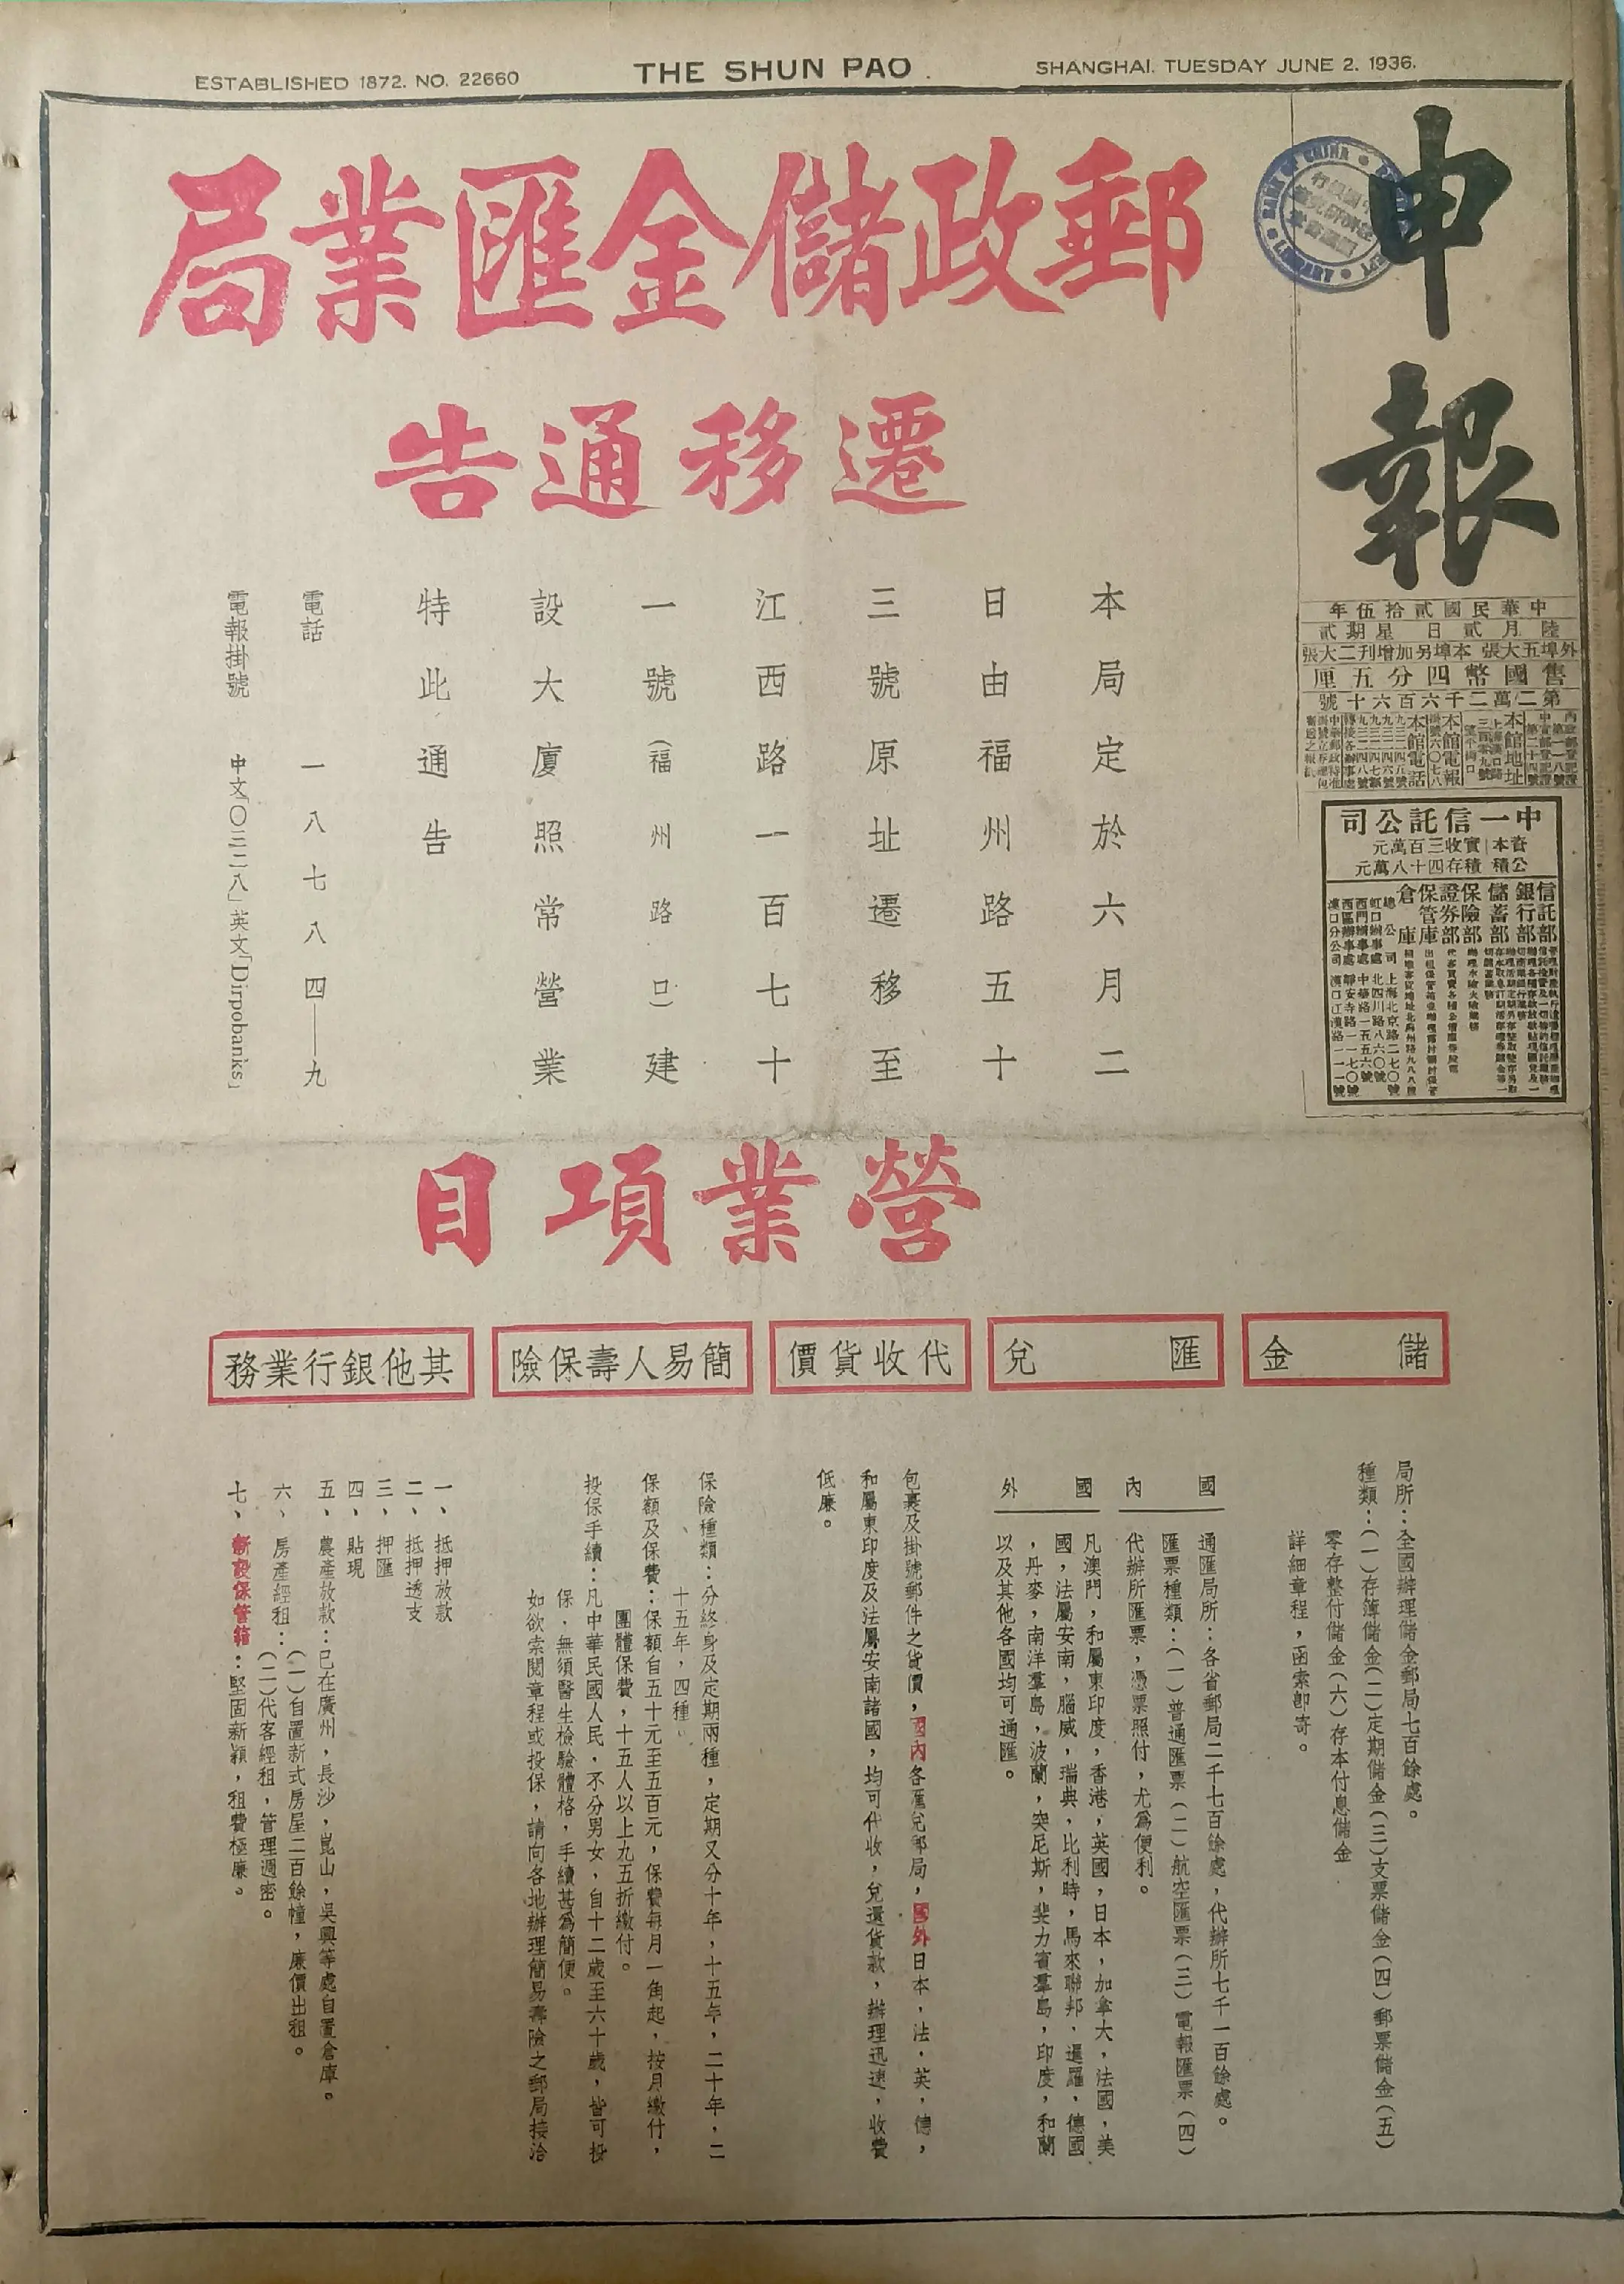 ESTABLISHED 1872. NO. 22660
THE SHUN PAO
SHANGHAI. TUESDAY JUNE 2. 1936.
申報
中華民國貳拾伍年
陸月貳日 星期貳
外埠五大張 本埠另加增刋二大張
售國幣四分五厘
第二萬二千六百六十號
本館地址
本館電報
本館電話
中一信託公司
資本 實收三百萬元
公積 積存四十八萬元
信託部
銀行部
儲蓄部
保險部
證券部
保管庫
倉庫
總公司 上海北京路二七〇號
虹口辦事處 北四川路八六〇號
西門辦事處 中華路一五五六號
西區辦事處 靜安寺路一一七〇號
漢口分公司 漢口江漢路一一一號
郵政儲金匯業局
遷移通告
本局定於六月二
日由福州路五十
三號原址遷移至
江西路一百七十
一號(福州路口)建
設大廈照常營業
特此通告
電話 一八七八四—九
電報掛號 中文「〇三二八」英文「Dirpobanks」
營業項目
儲金
局所：全國辦理儲金郵局七百餘處。
種類：(一)存簿儲金(二)定期儲金(三)支票儲金(四)郵票儲金(五)
零存整付儲金(六)存本付息儲金
詳細章程，函索卽寄。
匯兌
國內
通匯局所：各省郵局二千七百餘處，代辦所七千一百餘處。
匯票種類：(一)普通匯票(二)航空匯票(三)電報匯票(四)
代辦所匯票，憑票照付，尤爲便利。
國外
凡澳門，和屬東印度，香港，英國，日本，加拿大，法國，美
國，法屬安南，腦威，瑞典，比利時，馬來聯邦，暹羅，德國
，丹麥，南洋羣島，波蘭，突尼斯，斐力賓羣島，印度，和蘭
以及其他各國均可通匯。
代收貨價
包裹及掛號郵件之貨價，國內各匯兌郵局，國外日本，法，英，德，
和屬東印度及法屬安南諸國，均可代收，兌還貨款，辦理迅速，收費
低廉。
簡易人壽保險
保險種類：分終身及定期兩種，定期又分十年，十五年，二十年，二
十五年，四種。
保額及保費：保額自五十元至五百元，保費每月一角起，按月繳付，
團體保費，十五人以上九五折繳付。
投保手續：凡中華民國人民，不分男女，自十二歲至六十歲，皆可投
保，無須醫生檢驗體格，手續甚爲簡便。
如欲索閱章程或投保，請向各地辦理簡易壽險之郵局接洽
其他銀行業務
一、抵押放款
二、抵押透支
三、押匯
四、貼現
五、農產放款：已在廣州，長沙，崑山，吳興等處自置倉庫。
六、房產經租：(一)自置新式房屋二百餘幢，廉價出租。
(二)代客經租，管理週密。
七、新設保管箱：堅固新穎，租費極廉。